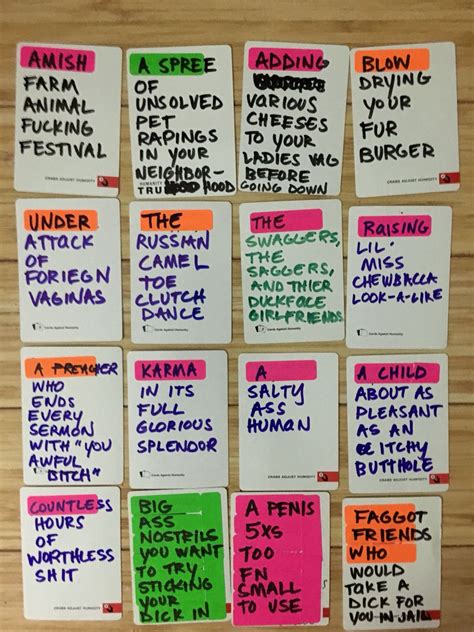 AMISH
FARM
ANIMAL
FUCKING
FESTIVAL
CRABS ADJUST HUMIDITY
A SPREE
OF
UNSOLVED
PET
RAPINGS
IN YOUR
NEIGHBOR-
HOOD
ADDING
VARIOUS
CHEESES
TO YOUR
LADIES VAG
BEFORE
GOING DOWN
BLOW
DRYING
YOUR
FUR
BURGER
CRABS ADJUST HUMIDITY
UNDER
ATTACK
OF
FORIEGN
VAGINAS
Cards Against Humanity
THE
RUSSIAN
CAMEL
TOE
CLUTCH
DANCE
Cards Against Humanity
THE
SWAGGERS,
THE
SAGGERS,
AND THIER
DUCKFACE
GIRLFRIENDS
Cards Against Humanity
RAISING
LIL'
MISS
CHEWBACCA
LOOK-A-LIKE
Cards Against Humanity
A PREACHER
WHO
ENDS
EVERY
SERMON
WITH "YOU
AWFUL
BITCH"
KARMA
IN ITS
FULL
GLORIOUS
SPLENDOR
Cards Against Humanity
A
SALTY
ASS
HUMAN
CRABS ADJUST HUMIDITY
A CHILD
ABOUT AS
PLEASANT
AS AN
ITCHY
BUTTHOLE
CRABS ADJUST HUMIDITY
COUNTLESS
HOURS
OF
WORTHLESS
SHIT
CRABS ADJUST HUMIDITY
BIG
ASS
NOSTRILS
YOU WANT
TO TRY
STICKING
YOUR
DICK IN
A PENIS
5XS
TOO
FN
SMALL
TO USE
FAGGOT
FRIENDS
WHO
WOULD
TAKE A
DICK FOR
YOU IN JAIL